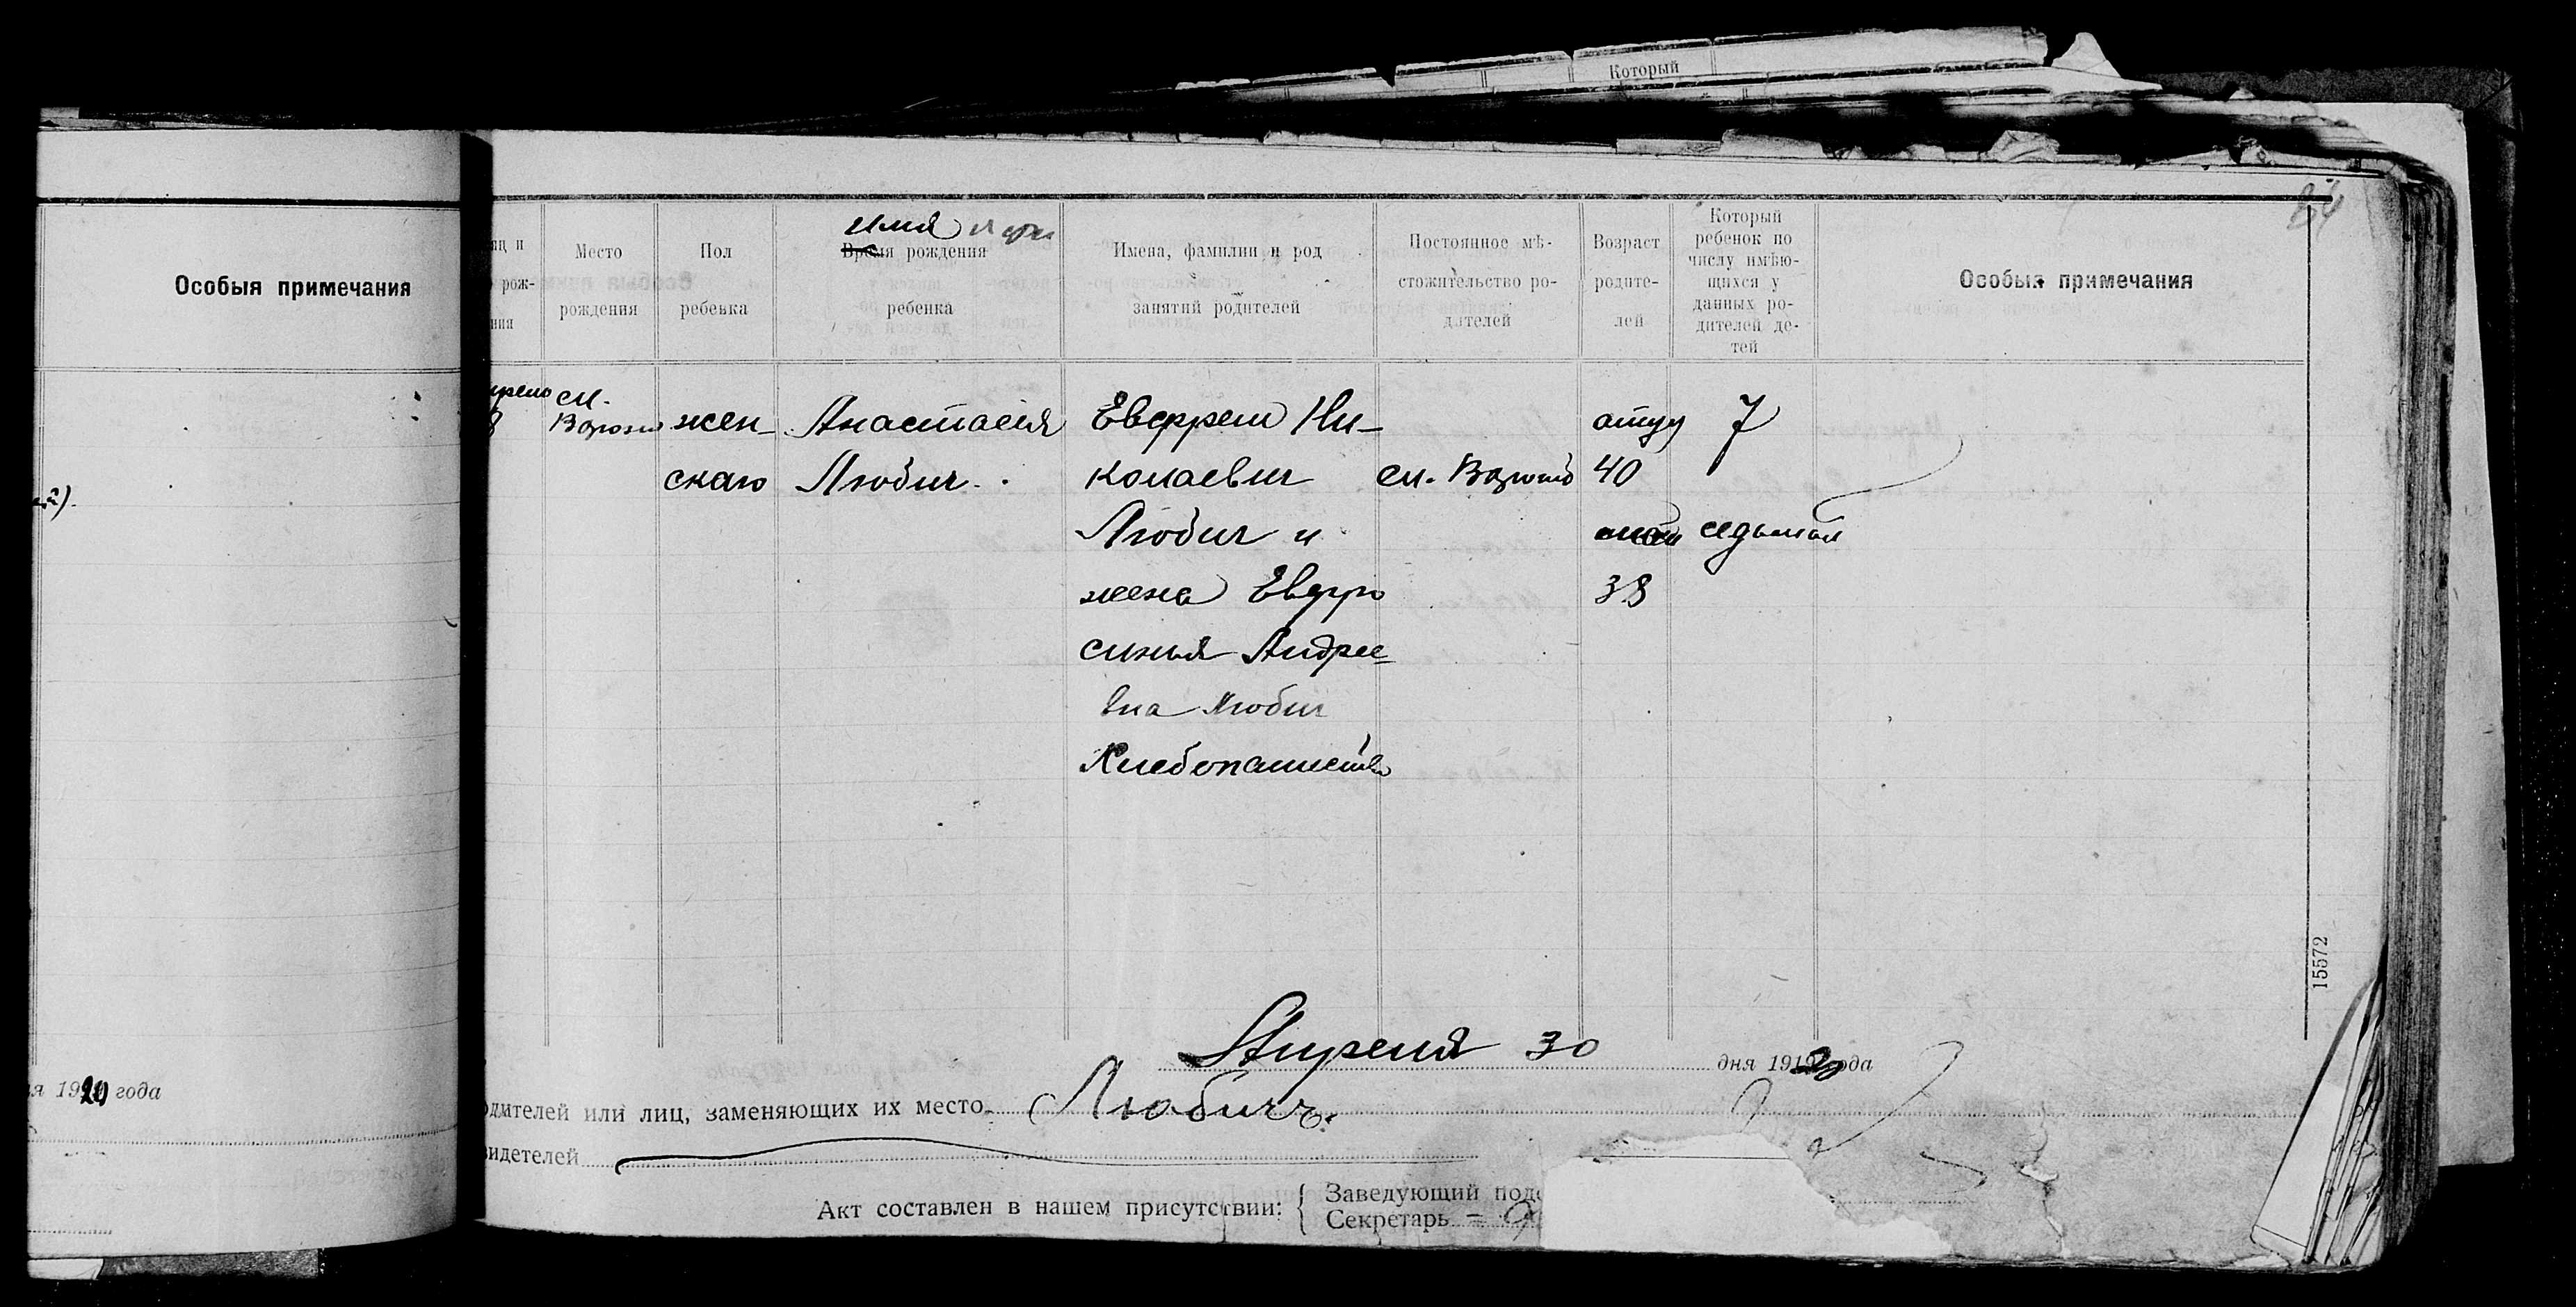 Который
Особыя примечания
года
яц и
рож-
ния
Место
рождения
Пол
ребенка
имя
Время рождения
ребенка
Имена, фамилии и род
занятий родителей
Постоянное мѣ-
стожительство ро-
дителей
Возраст
родите-
лей
Который
ребенок по
числу имѣю-
щихся у
данных ро-
дителей де-
тей
Особыя примечания
сл.
жен-
скаго
Анастасия
Любич
Ни-
колаевич
Любич и
жена Евфро
синья Андрее-
вна Любич
Хлебопашество
сл.
отцу
40
38
7
седьмая
15572
Апреля 30 дня 1920 года
одителей или лиц, заменяющих их место Любич
видетелей
Акт составлен в нашем присутствии:
Заведующий
Секретарь